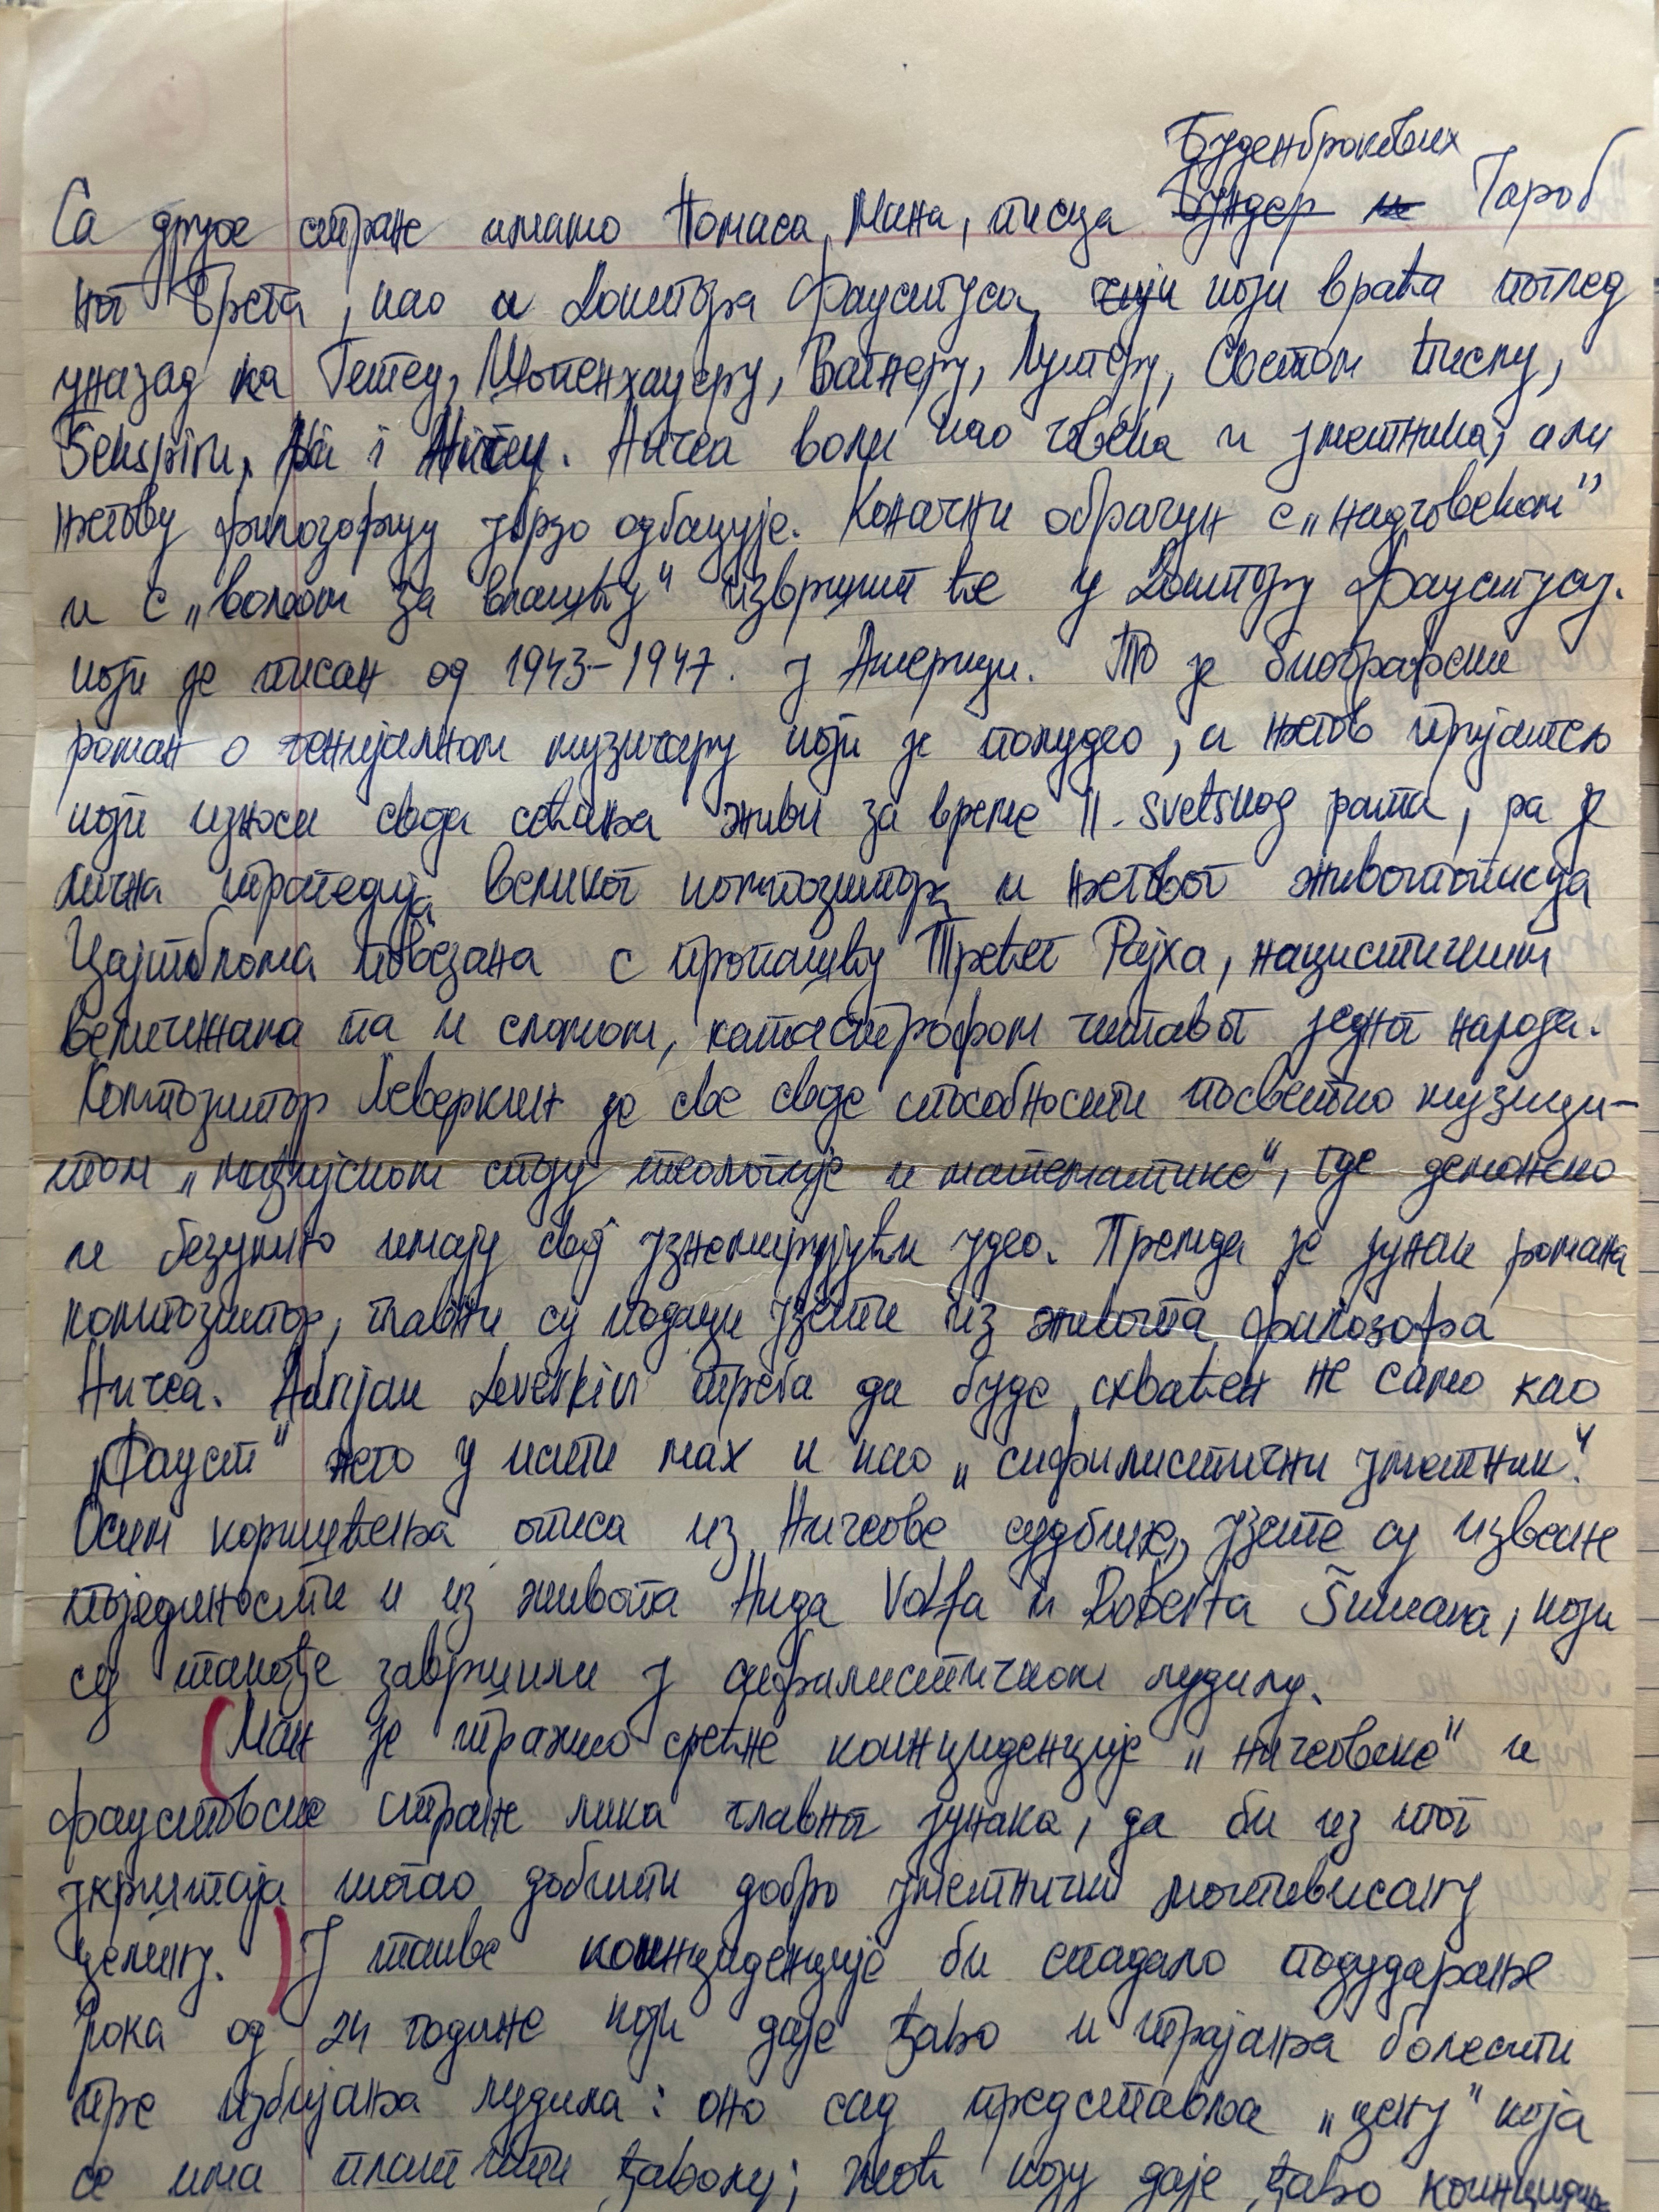 Буденброкових
Са друге стране имамо Томаса Мана, писца Бундер и Чароб
ног брега, као и Доктора Фаустуса, чији који враћа поглед
уназад ка Гетеу, Шопенхауеру, Вагнеру, Лутеру, Светом писму,
Šekspiru, i Ničeu. Ничеа воли као човека и уметника, али
његову филозофију убрзо одбацује. Коначни обрачун с „надчовеком"
и с „вољом за влашћу" извршит ће у Доктору Фаустусу.
који је писан од 1943–1947. у Америци. То је биографски
роман о генијалном музичару који је полудео, а његов пријатељ
који износи своја сећања живи за време II. svetskog рата, pa је
лична трагедија великог композитора и његовог животописца
Цајтблома повезана с пропашћу Трећег Рајха, нацистичким
величинама па и сломом, катастрофом читавог једног народа.
Композитор Леверкин је све своје способности посветио музици–
том „магијском споју теологије и математике", где демонско
и безумно имају свој узнемирујући удео. Премда је јунак романа
композитор, главни су подаци узети из живота филозофа
Ничеа. Adrijan Leverkin треба да буде схваћен не само као
„Фауст" него у исти мах и као „сифилистични уметник."
Осим коришћења описа из Ничеове судбине, узете су извесне
појединости и из живота Huga Volfa и Roberta Šumana, који
су такође завршили у сифилистичном лудилу.
Ман је тражио срећне коинциденције „ничеовске" и
фаустовске стране лика главног јунака, да би из тог
укрштаја могао добити добро уметнички мотивисану
целину. У такве коинциденције би спадало подударање
рока од 24 године који даје ђаво и трајања болести
пре избијања лудила: оно сад представља „цену" која
се има платити ђаволу; моћ коју даје ђаво